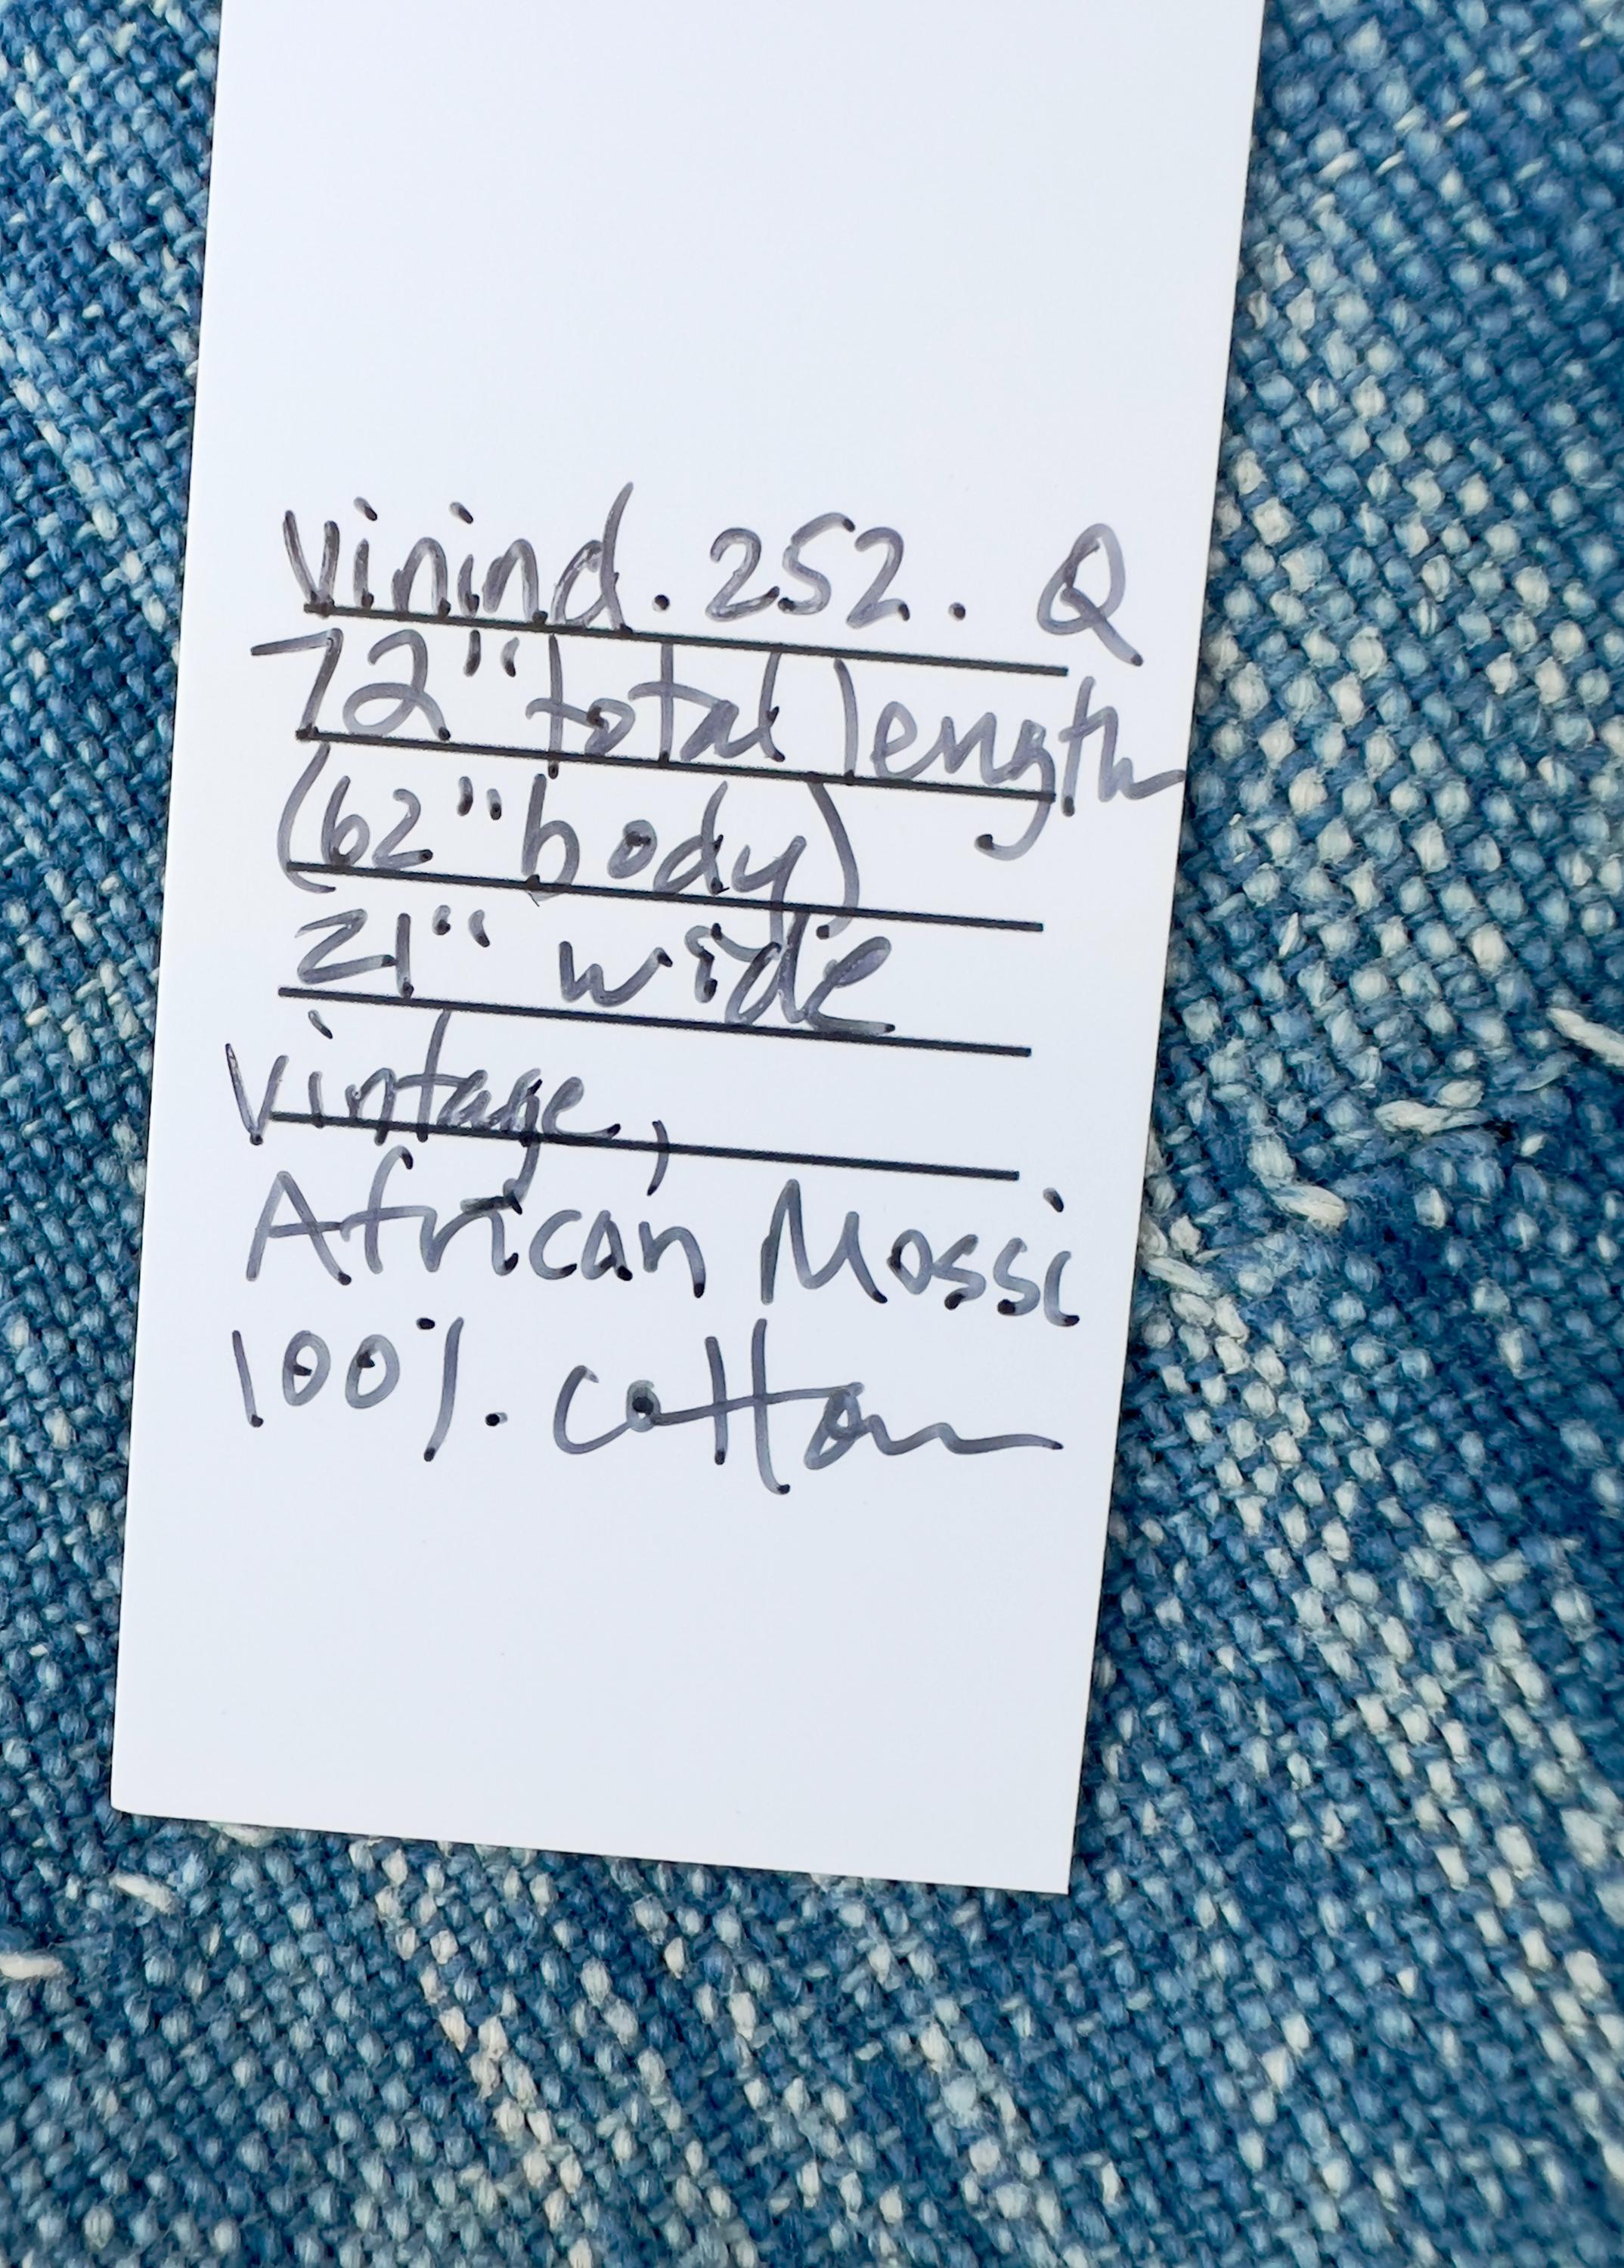 vinind. 252. Q
72" total length
(62" body)
21" wide
vintage,
African Mossi
100%. cotton